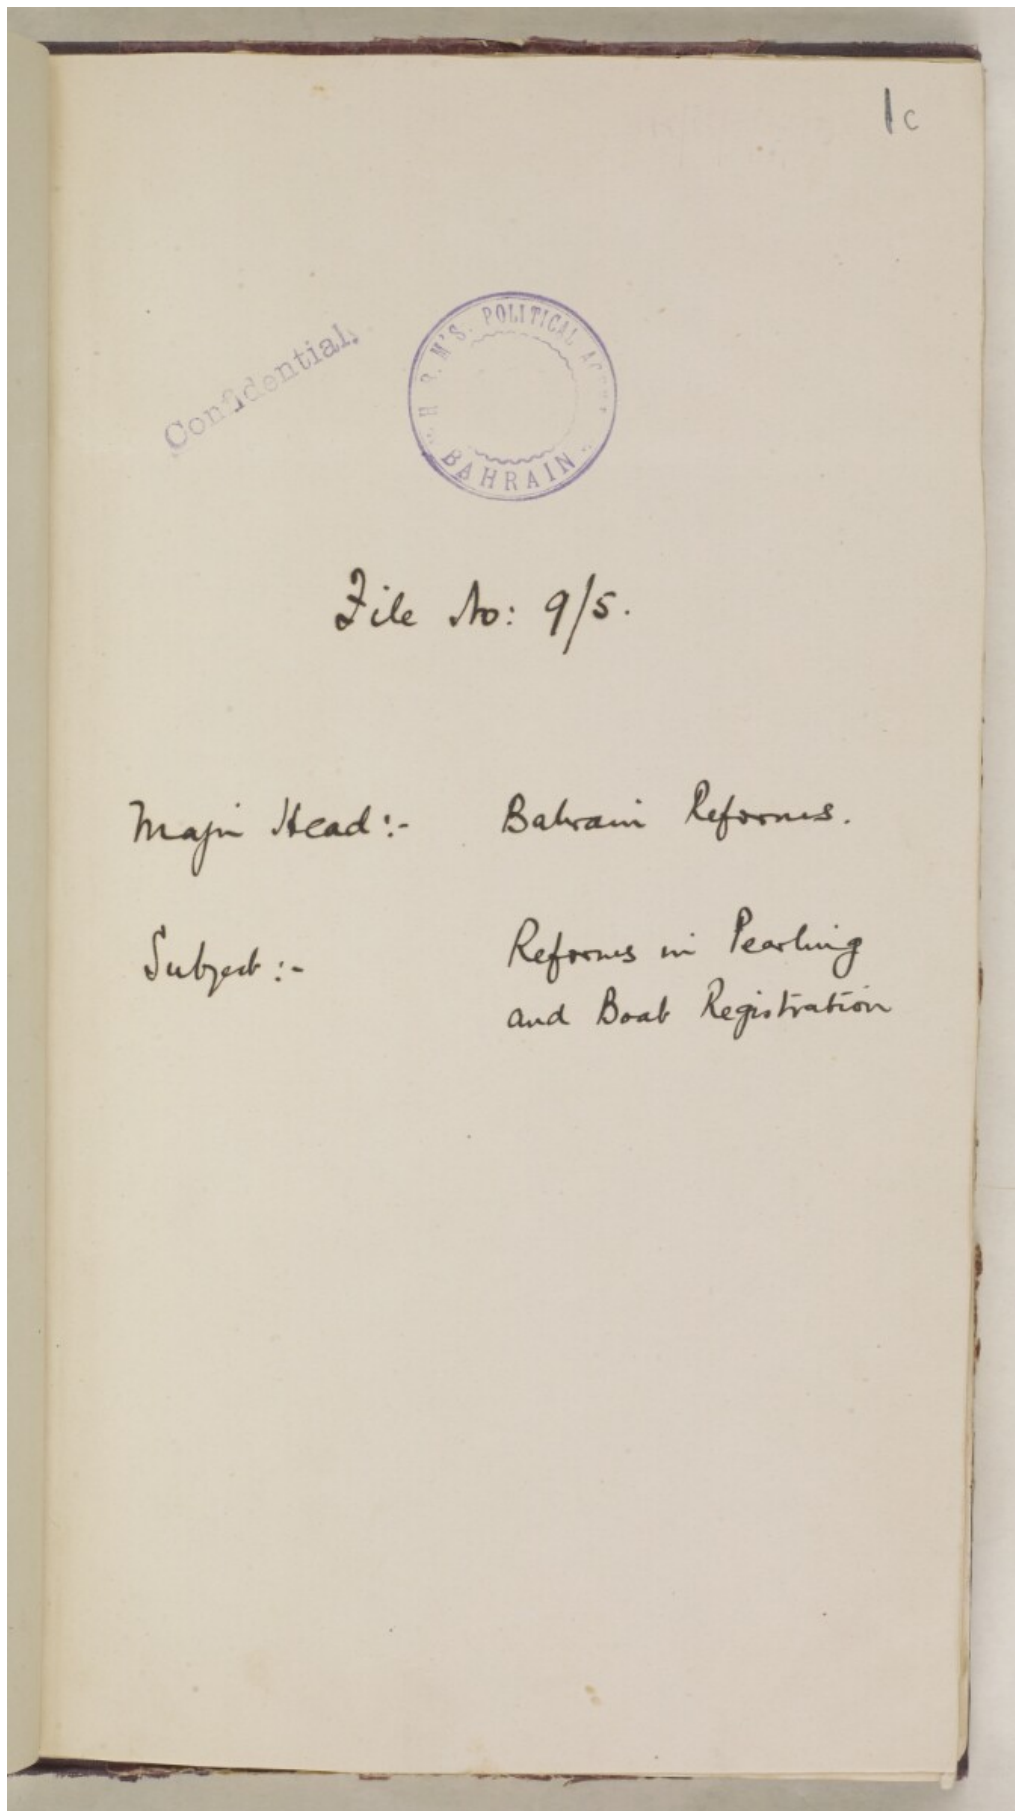 1c
Confidential.
H. B. M'S. POLITICAL
BAHRAIN
File No: 9/5.
Major Head:- Bahrain Reforms.
Subject:- Reforms in Pearling
and Boat Registration